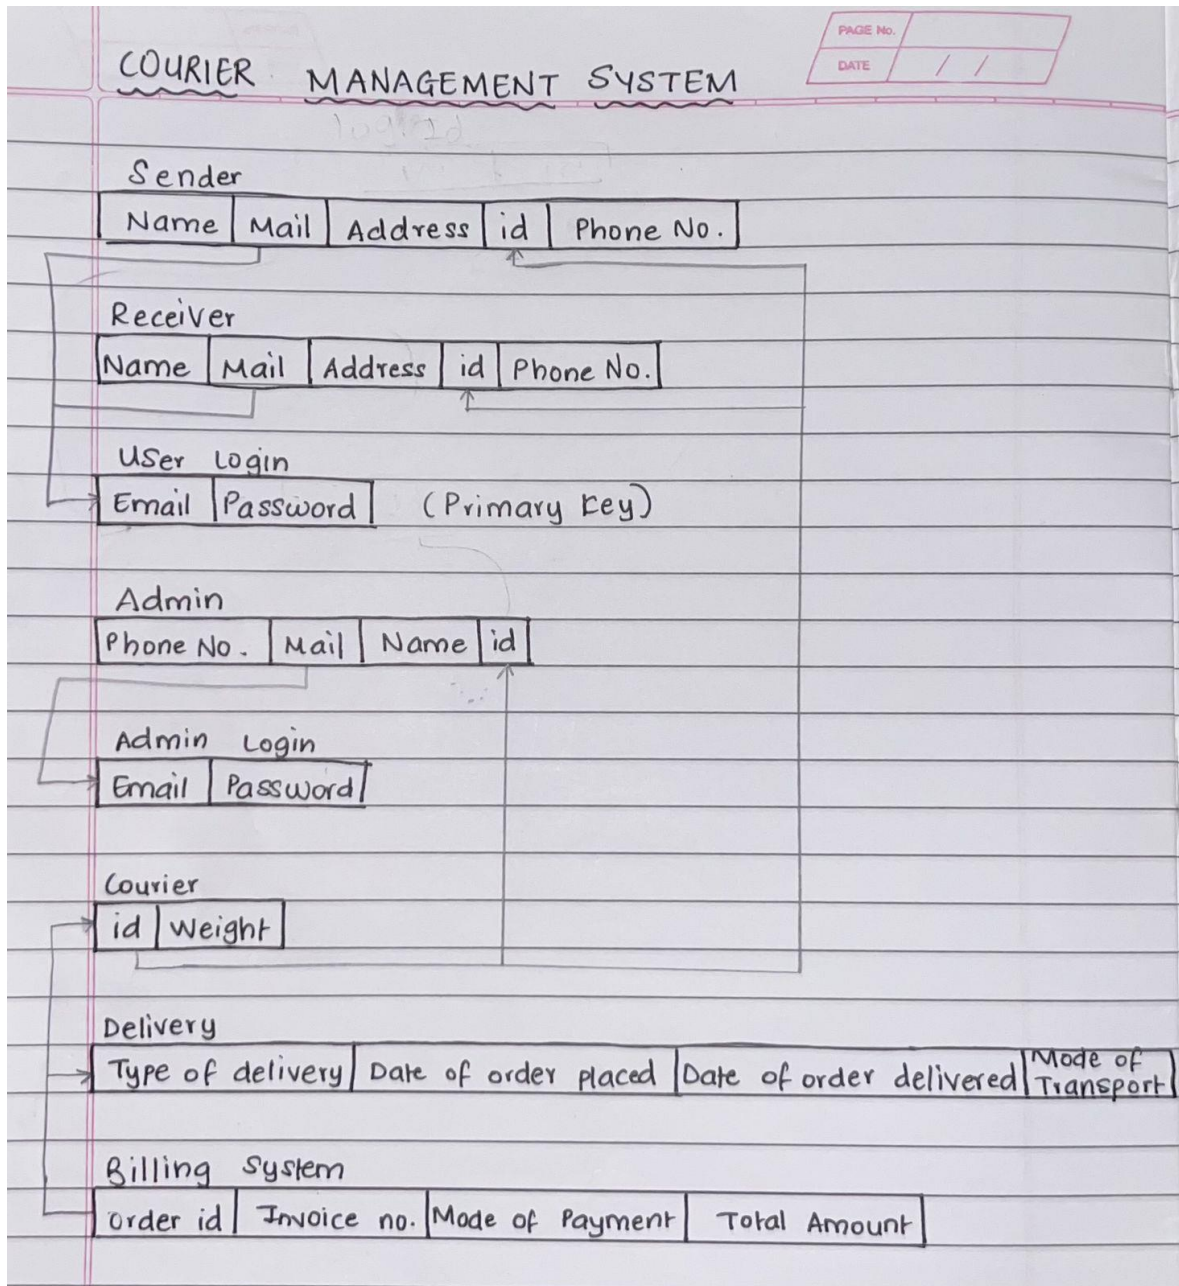 PAGE No.
DATE / /
COURIER MANAGEMENT SYSTEM
Sender
Name Mail Address id Phone No.
Receiver
Name Mail Address id Phone No.
User Login
Email Password (Primary Key)
Admin
Phone No. Mail Name id
Admin Login
Email Password
Courier
id Weight
Delivery
Type of delivery Date of order placed Date of order delivered Mode of
Transport
Billing System
order id Invoice no. Mode of Payment Total Amount